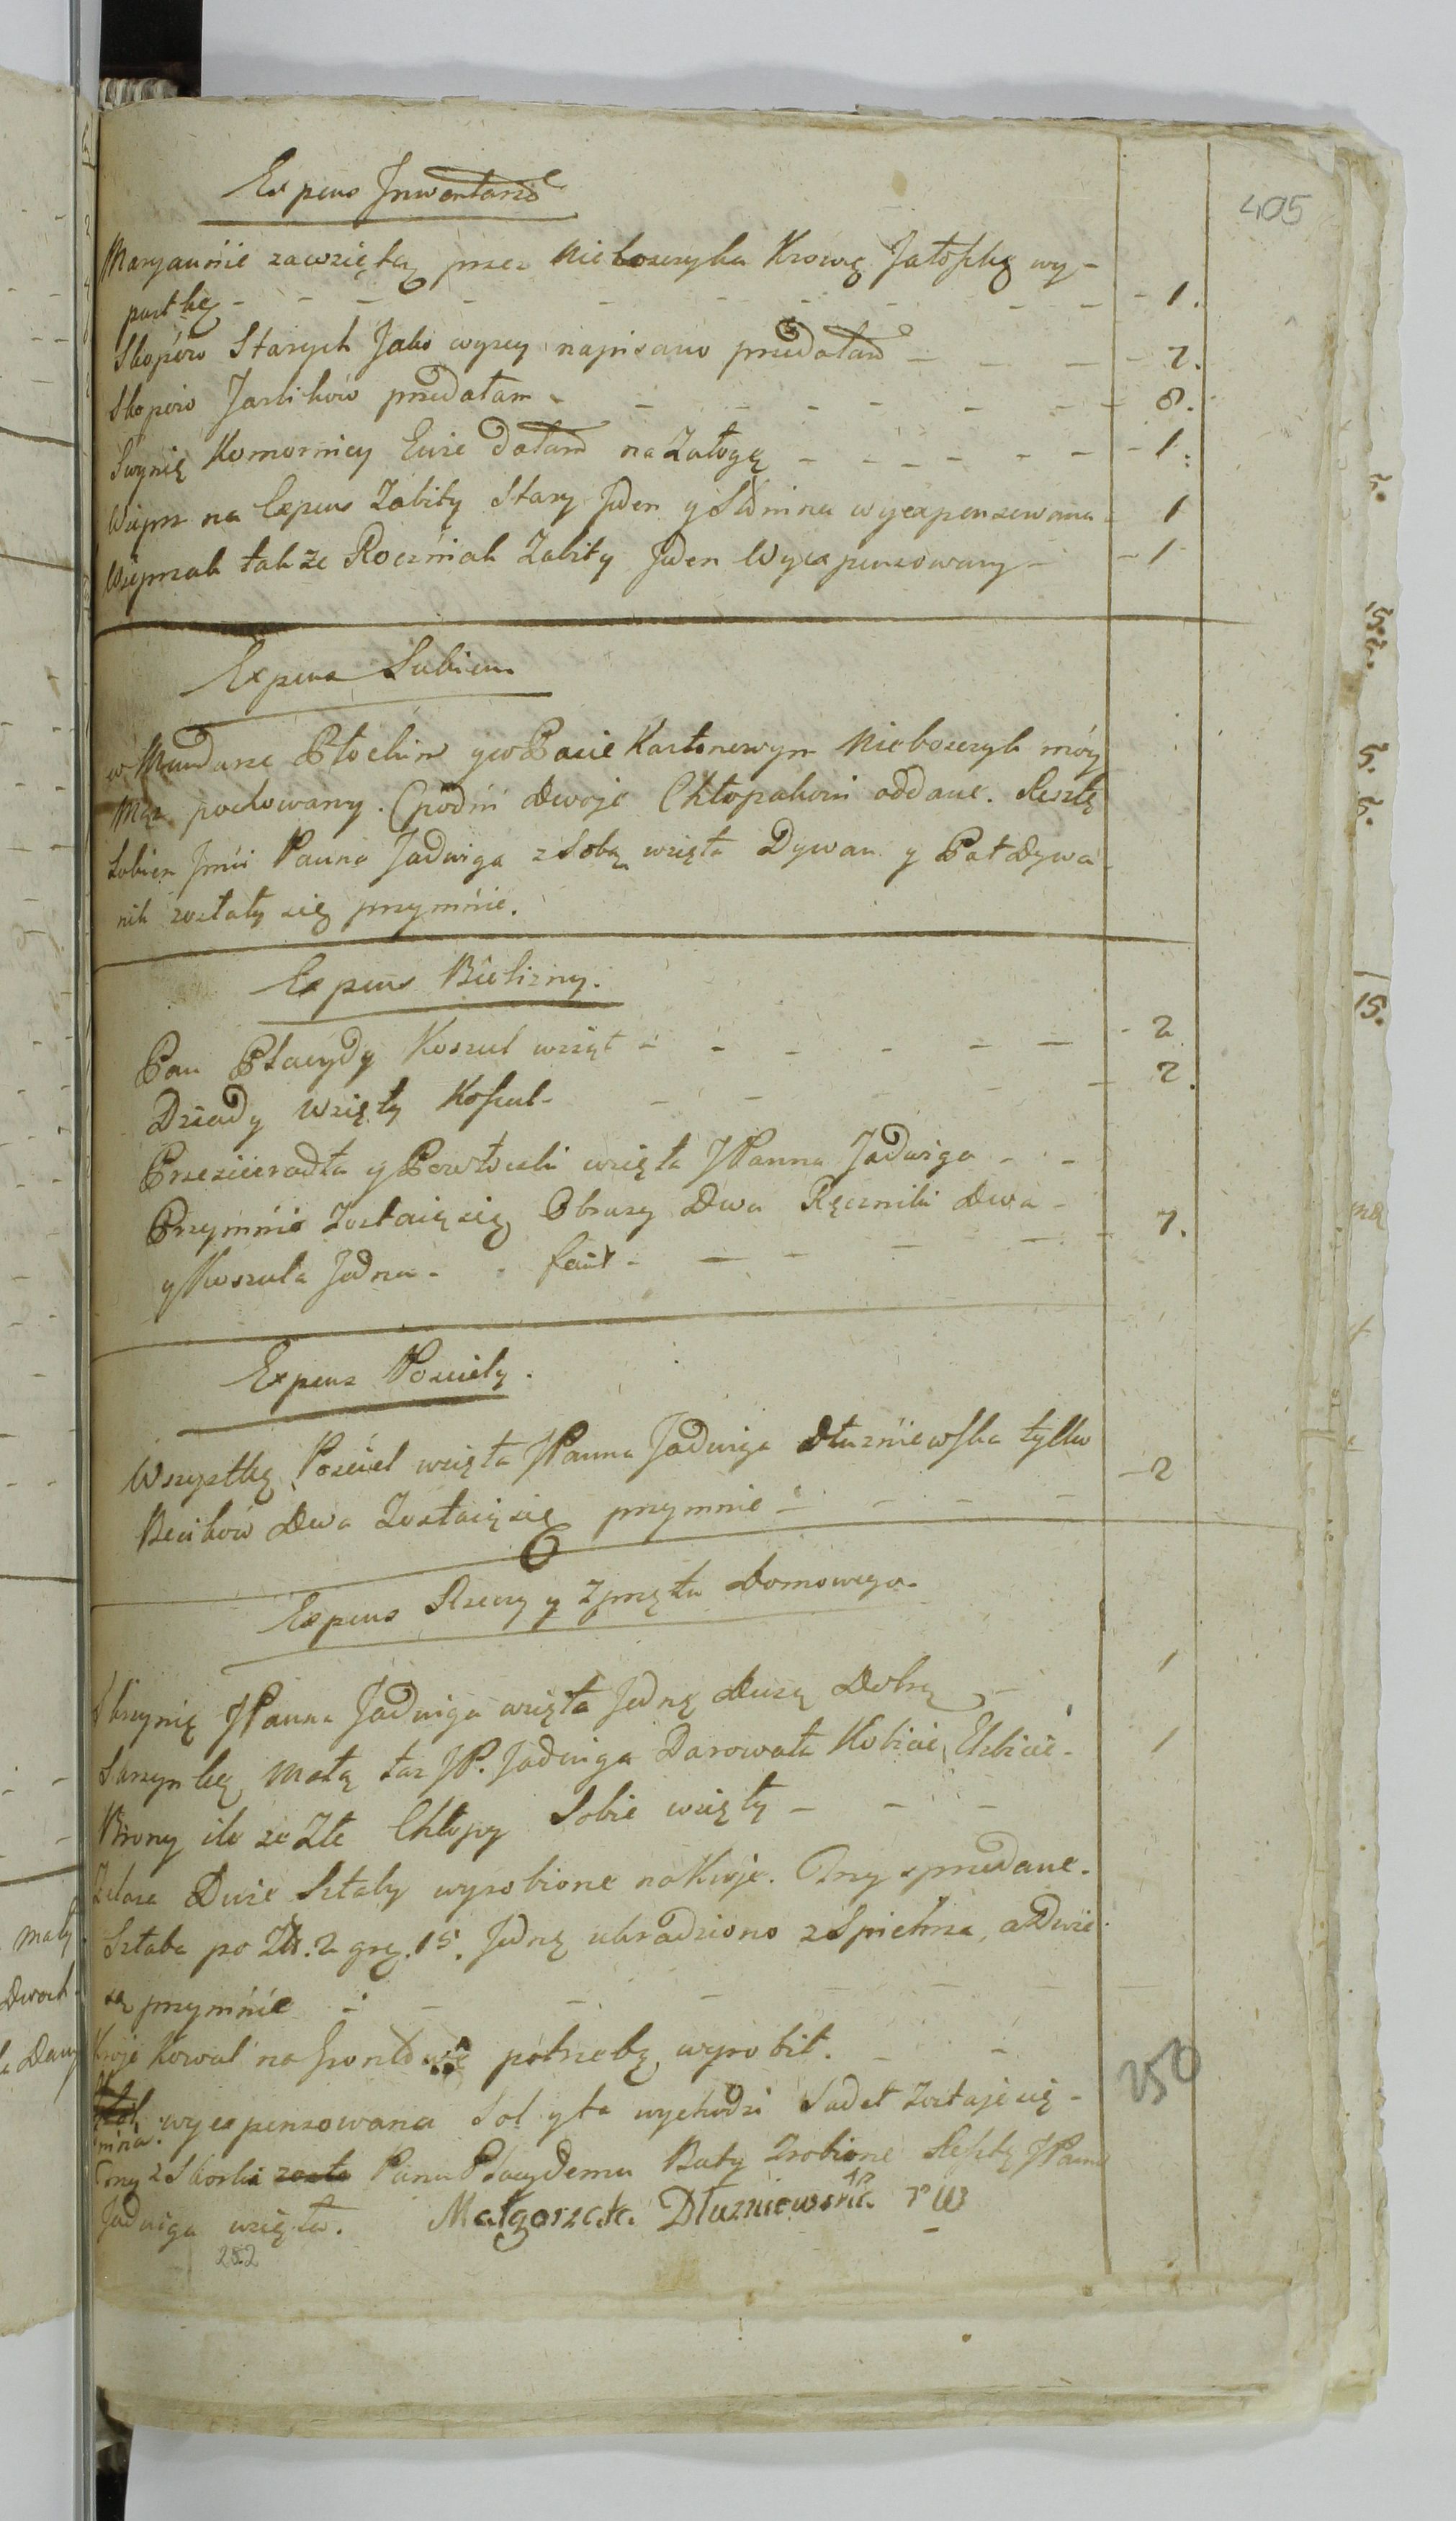 405
Expens Inwentarza
Maryannie zawziętą przez Nieboszczyka Krowę Jałoszkę wy-
pustkę - 1.
Skopów Starych Jako wyzey napisano przedałam - 2.
Skopów Jarlików przedałam - 8.
Swynię Komornicy Ewie dałam na Załogę - 1.
Wieprz na Expens Zabity Stary Jeden y Słonina wyexpensowana - 1
Wieprzak takze Roczniak Zabity Jeden Wyexpensowany - 1
Expens Sukien
w Mundurze Płockim y w Pasie Kartonowym Nieboszczyk móy
Mąz pochowany. Spodni dwoje Chłopakom oddane. Resztę
Sukien Jmci Panna Jadwiga z Sobą wzięła Dywan y Pałdywa-
nik zostały się przymnie.
Expens Bielizny.
Pan Płacydy Koszul wziął - 2
Dziady Wzięły Koszul - 2.
Przescieradła y Powłoczki wzięła JPanna Jadwiga - -
Przymnie Zostaię się Obrusy Dwa Ręczniki dwa -
y Koszula Jedna - facit - 7.
Expens Poscieły.
Wszystkę Posciel wzięła JPanna Jadwiga Dłuzniewska tylko
Becików dwa Zostaię się przymnie - 2
Expens Rzeczy y Zprzętu domowego.
Skrzynię JPanna Jadwiga wzięła Jednę duzą Dobrą - 1
Skrzynkę Małą taz JP. Jadwiga Darowała Kobicie Elzbicie - 1
Brony ile ze Złe Chłopy Sobie wzięły -
Zelaza Dwie Sztaby wyrobione na Kroje. Trzy sprzedane.
Sztaba po Zł. 2 grę. 15. Jednę ukradziono z Spichrza, a Dwie
są przymnie -
Kroje Kowal na Grontowę potrzebę wyrobił. -
wyexpensowana Sol y ta wychodzi Sadeł zostaje się -
mnia.
Trzy z Skorki Panu Płacydemu Buty Zrobione Resztę JPanna
Jadwiga wzięła. Małgorzata Dłuzniewska
250
252